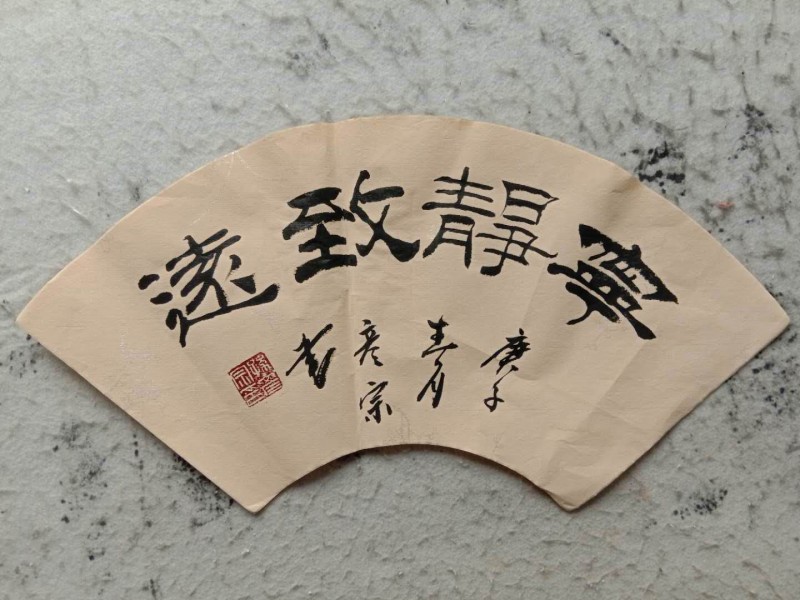 寧靜致遠
庚子
春月
彦宗
書